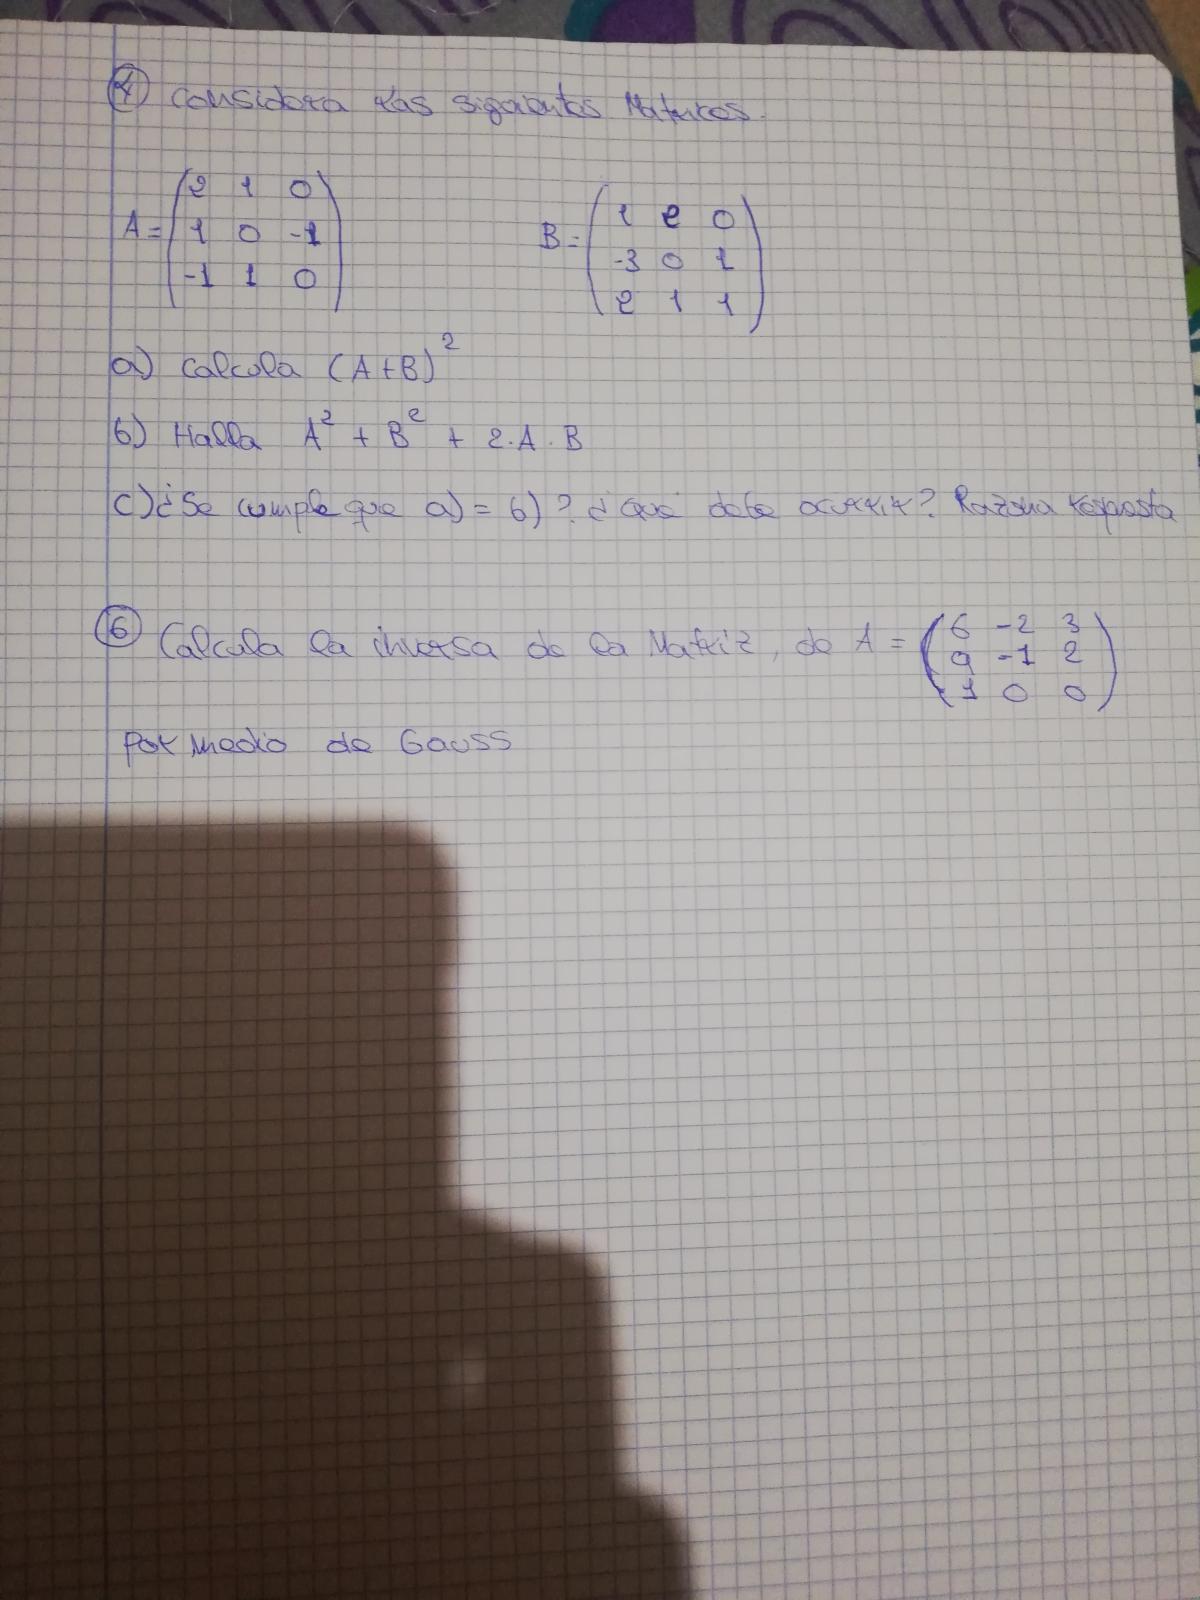 4 Considera las siguientes Matrices.
A = (2 1 0
1 0 -1
-1 1 0)
B = (1 2 0
-3 0 1
2 1 1)
a) calcula (A+B)²
b) Halla A² + B² + 2·A·B
c) ¿Se cumple que a) = b)? ¿que debe ocurrir? Razona respuesta
6 Calcula la inversa de la Matriz, de A = (6 -2 3
9 -1 2
1 0 0)
por medio de Gauss